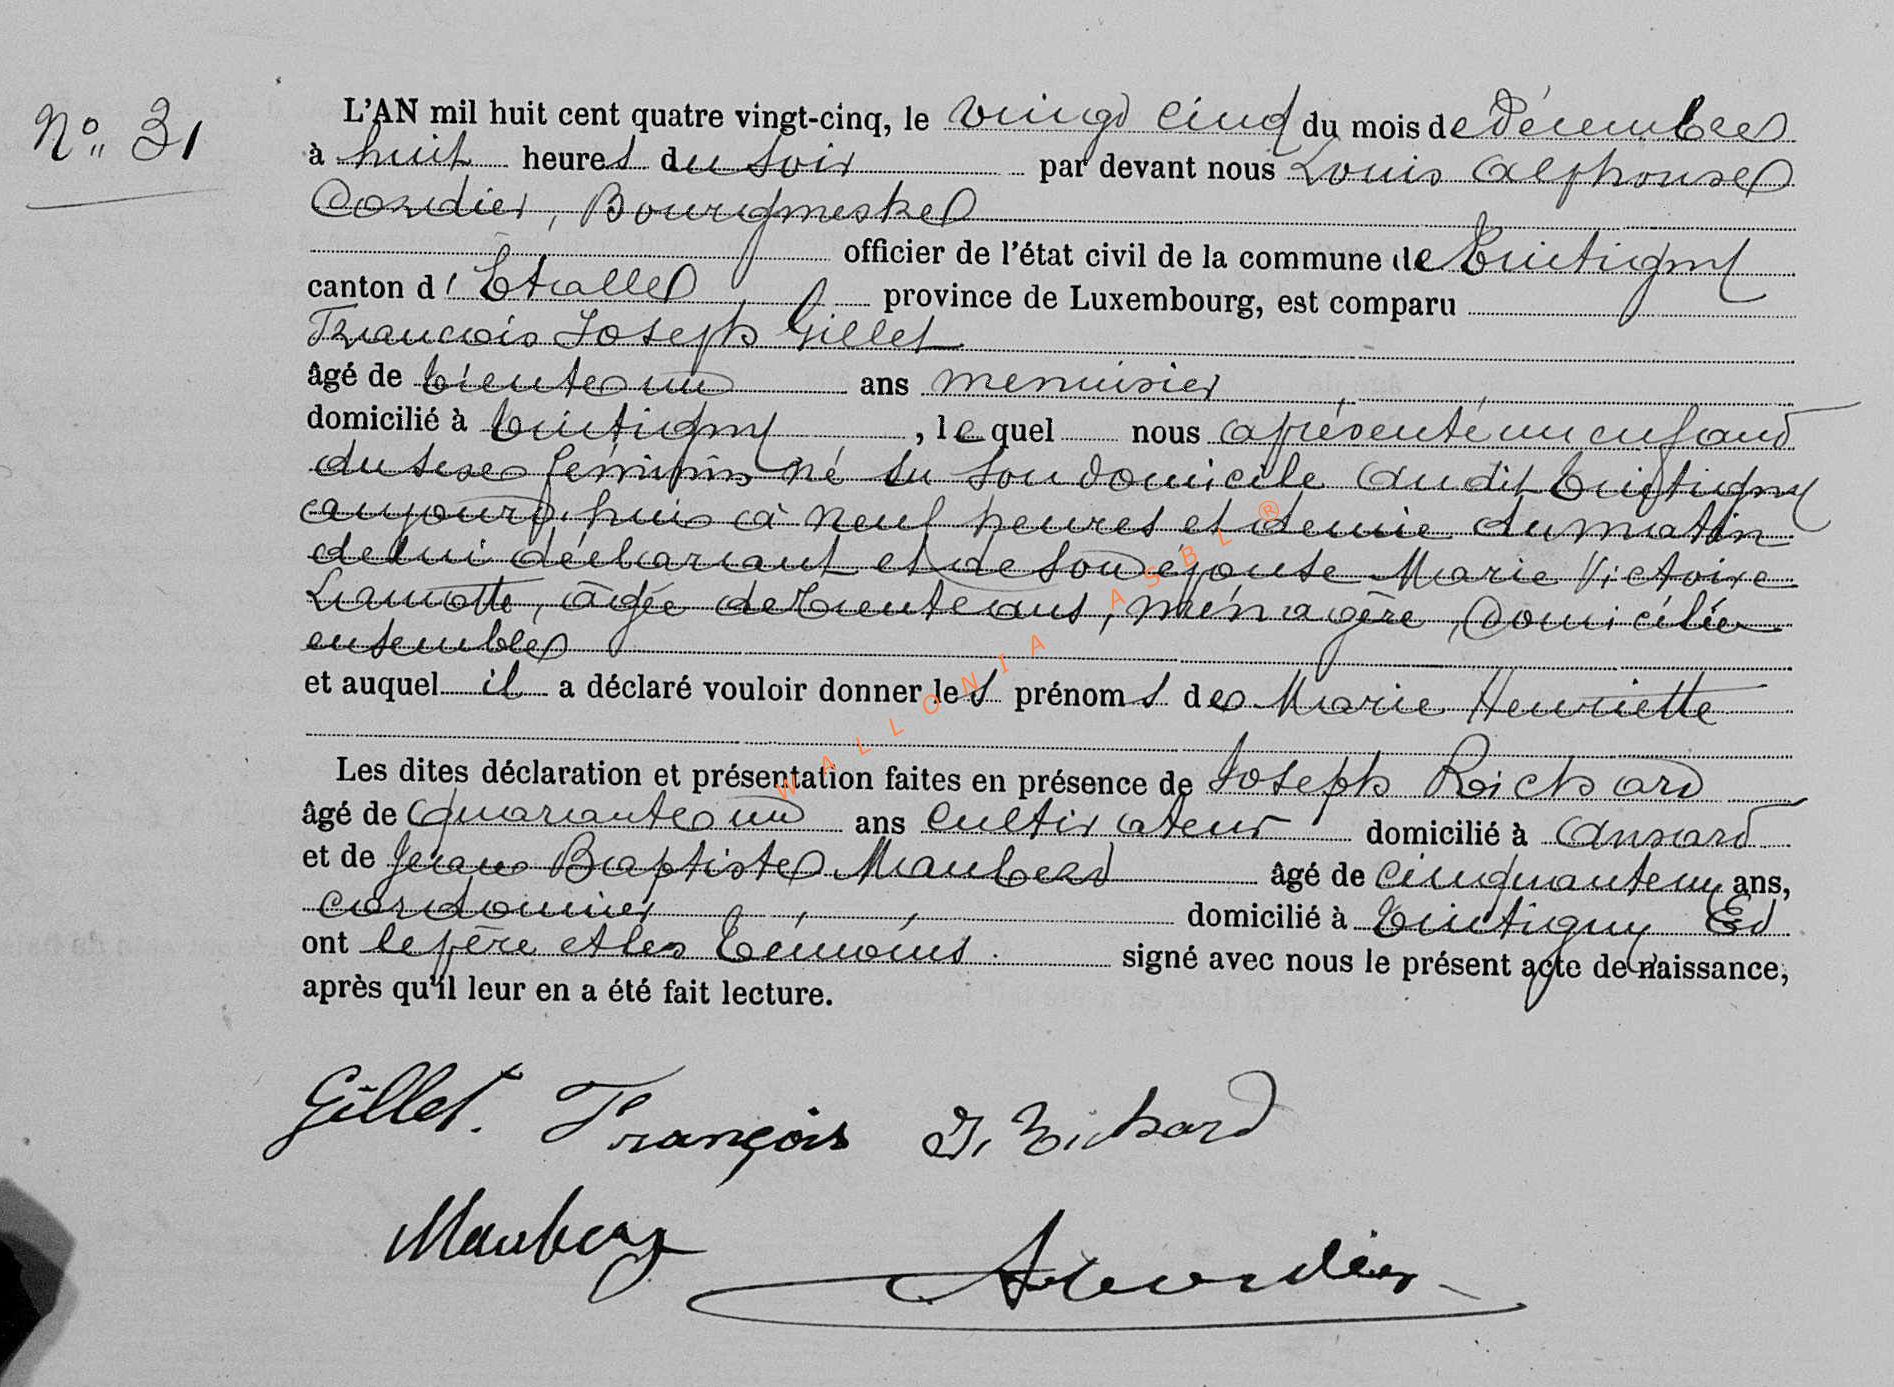 N° 31
L'AN mil huit cent quatre vingt-cinq, le vingt cinq du mois de Décembre
à huit heures du soir par devant nous Louis Alphonse
Cordier, Bourgmestre
officier de l'état civil de la commune de Tintigny
canton d'Etalle province de Luxembourg, est comparu
François Joseph Gillet
âgé de trente un ans menuisier
domicilié à Tintigny, lequel nous a présenté un enfant
du sexe féminin né en son domicile audit Tintigny
aujourd'hui à neuf heures et demie du matin
de lui déclarant et de son épouse Marie Victoire
Lamotte, âgée de trente ans, ménagère, domiciliée
ensemble
et auquel il a déclaré vouloir donner les prénoms de Marie Henriette
Les dites déclaration et présentation faites en présence de Joseph Richard
âgé de quarante un ans cultivateur domicilié à Ansart
et de Jean Baptiste Maubert âgé de cinquante un ans,
cordonnier domicilié à Tintigny Et
ont le père et les témoins signé avec nous le présent acte de naissance,
après qu'il leur en a été fait lecture.
Gillet. François J. Richard
Cordier
WALLONIA ASBL ®